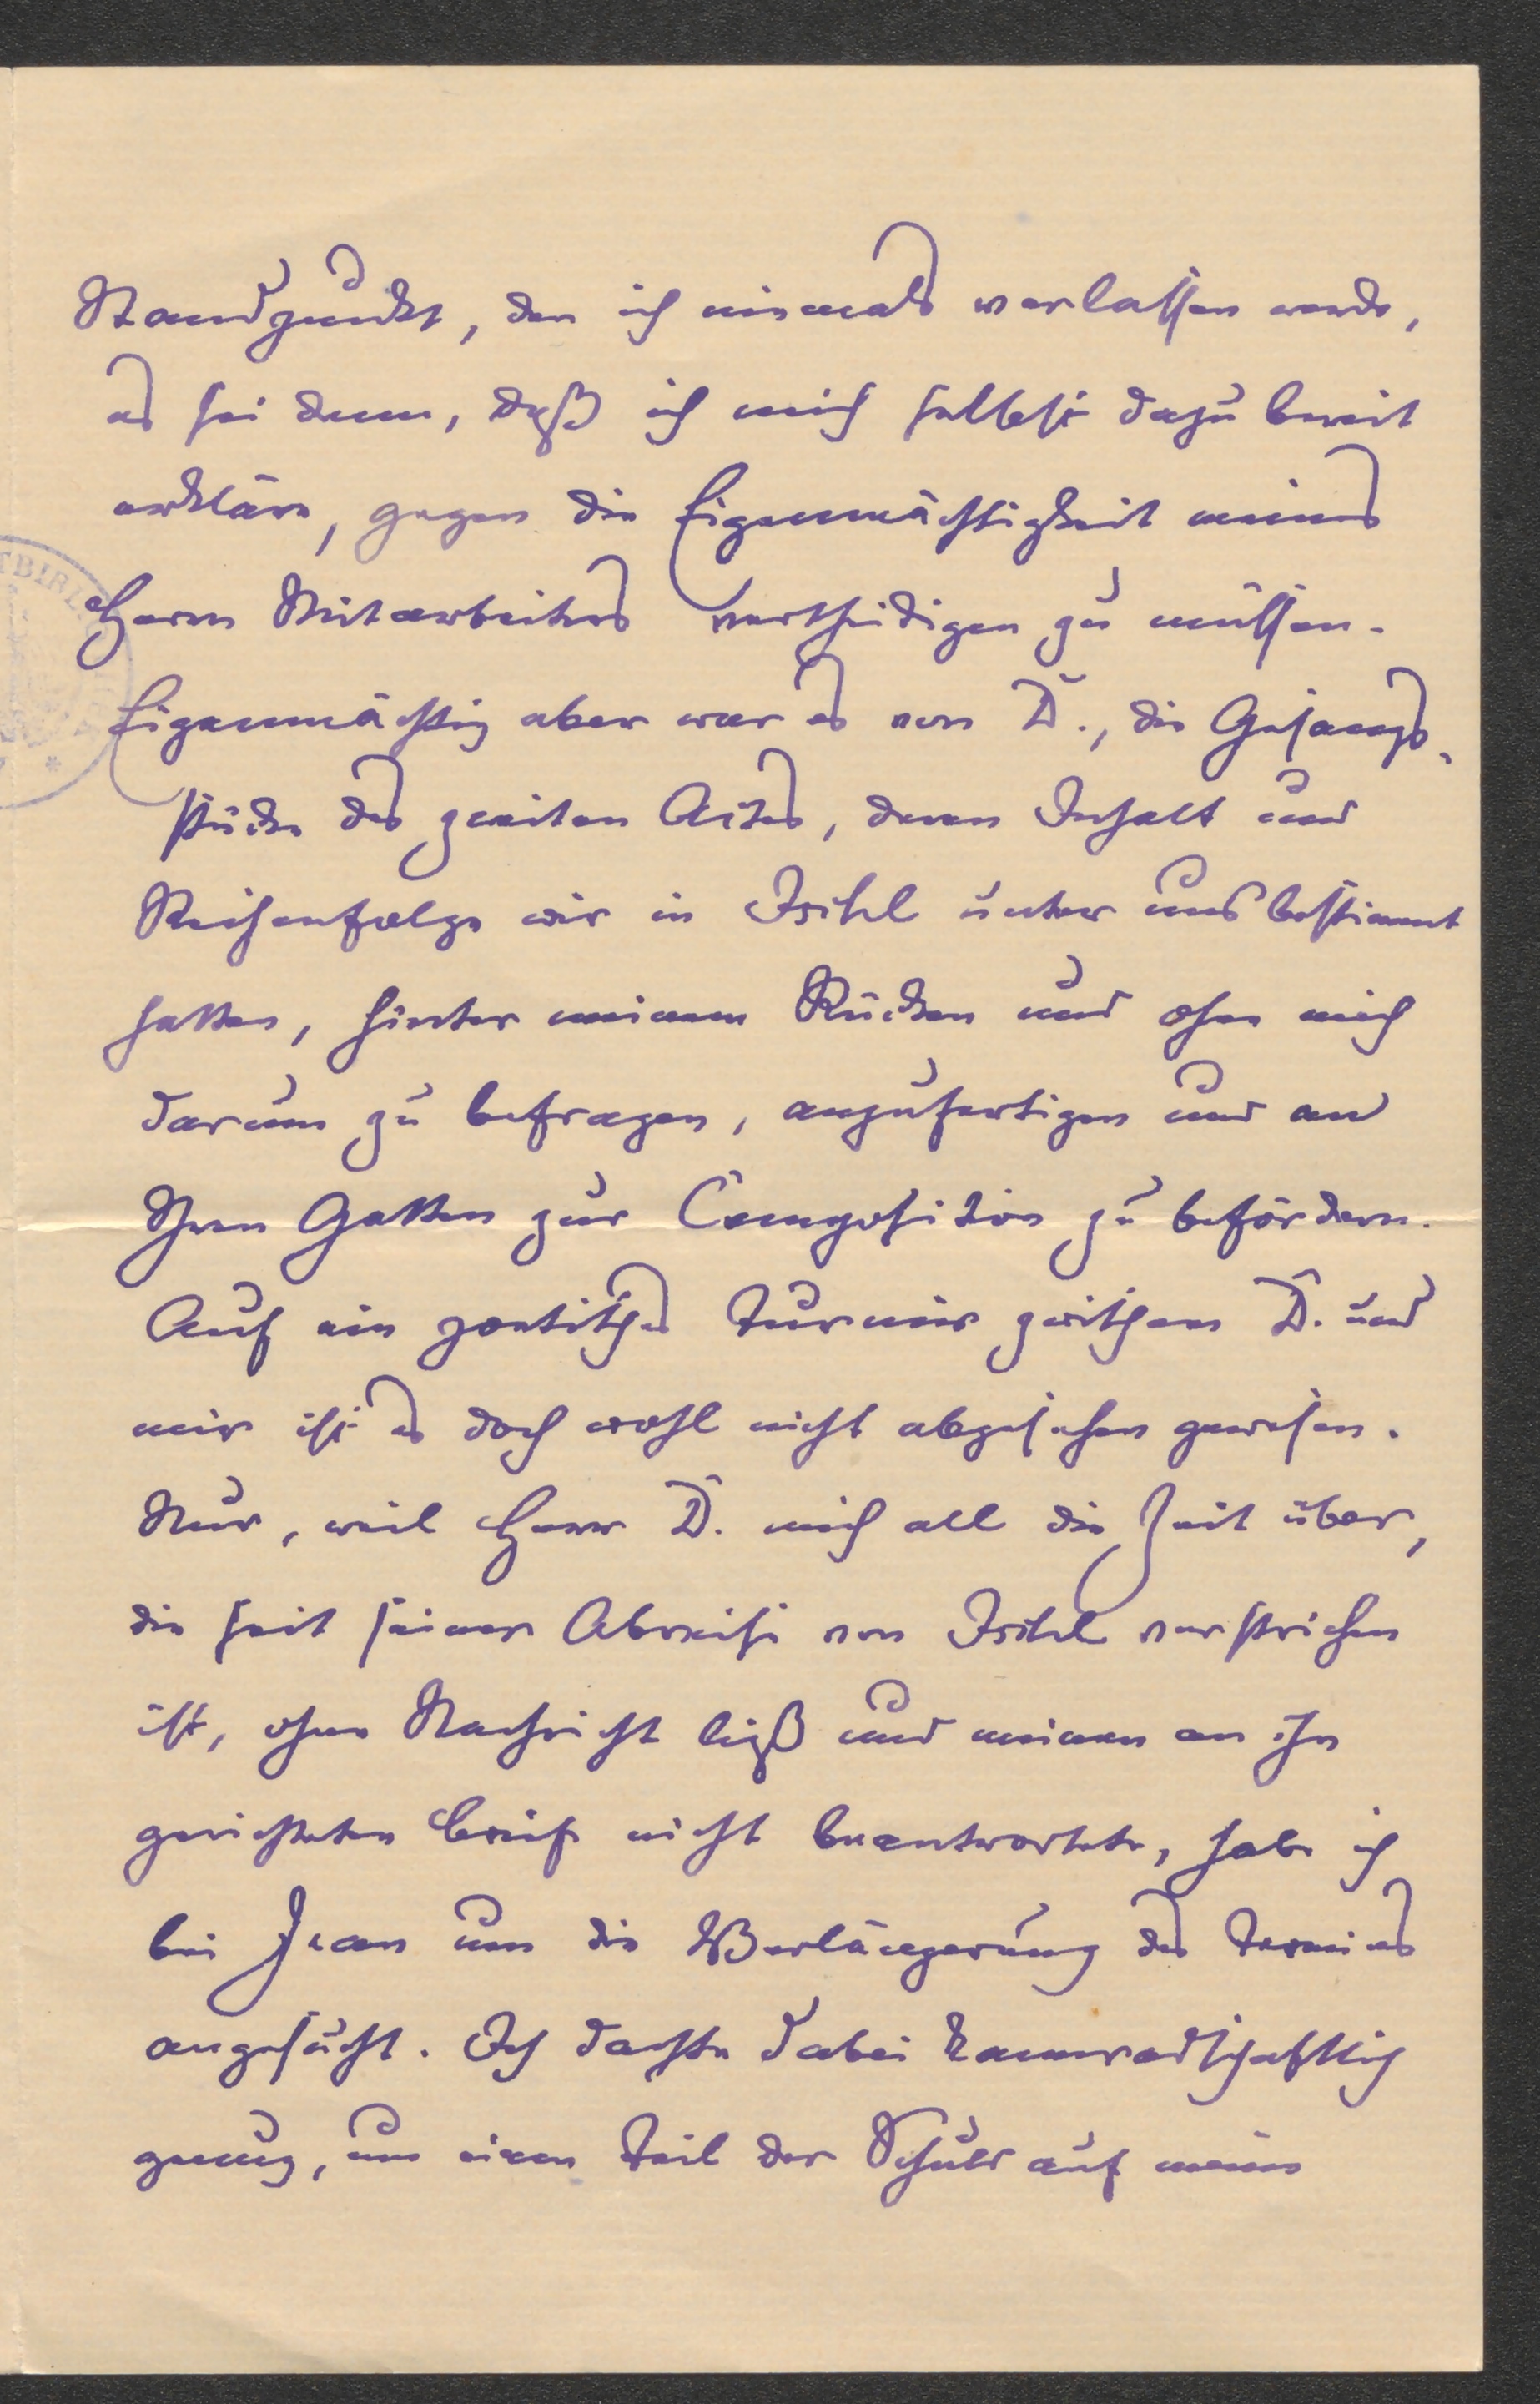 Standpunkt, den ich niemals verlassen werde,
es sei denn, daß ich mich selbst dazu bereit
erkläre, gegen die Eigenmächtigkeit meines
Herrn Mitarbeiters vertheidigen zu müssen.
Eigenmächtig aber war es von D., die Gesangs-
stücke des zweiten Actes, deren Inhalt und
Reihenfolge wir in Ischl unter uns bestimmt
hatten, hinter meinem Rücken und ohne mich
darum zu befragen, anzufertigen und an
Ihren Gatten zur Composition zu befördern.
Auf ein poetisches Turnier zwischen D. und
mir ist es doch wohl nicht abgesehen gewesen.
Nur, weil Herr D. mich all die Zeit über,
die seit seiner Abreise von Ischl verstrichen
ist, ohne Nachricht ließ und meinen an ihn
gerichteten Brief nicht beantwortete, habe ich
bei Jean um die Verlängerung des Termines
angesucht. Ich dachte dabei kameradschaftlich
genug, um einen Teil der Schuld auf meine